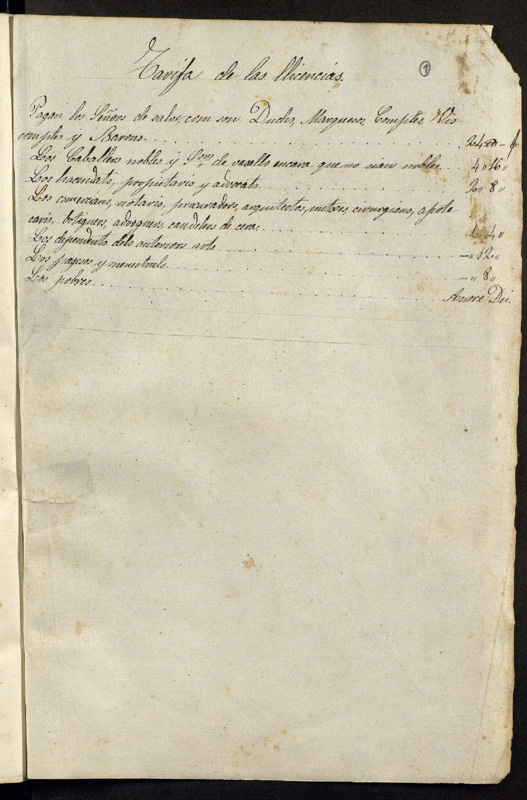 Tarifa de las llicencias.
1
Pagan los Señors de salvo, com son Duchs, Marquesos, Comptes, Vis
comptes y Barons
Los Caballers nobles y Sors de vasalls encara que no sian nobles 4 " 16 "
Los hacendats, propietaris y advocats 2 " 8 "
Los comercians, notaris, procuradors, arquitectos, metges, cirurgians, apote
caris, botiguers, adroguers, candelers de cera 4 "
Los dependents dels anteriors arts — " 12 "
Los pagesos y menestrals — " 8 "
Los pobres Amore Dei.